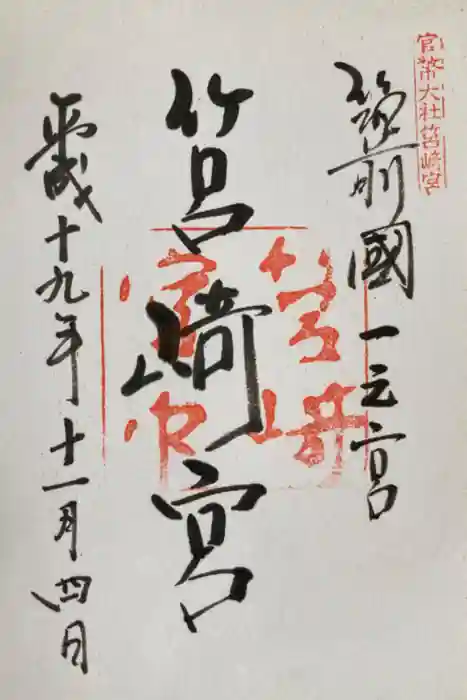 官幣大社筥崎宮
筑前國一之宮
筥崎宮
筥崎宮印
平成十九年十一月四日